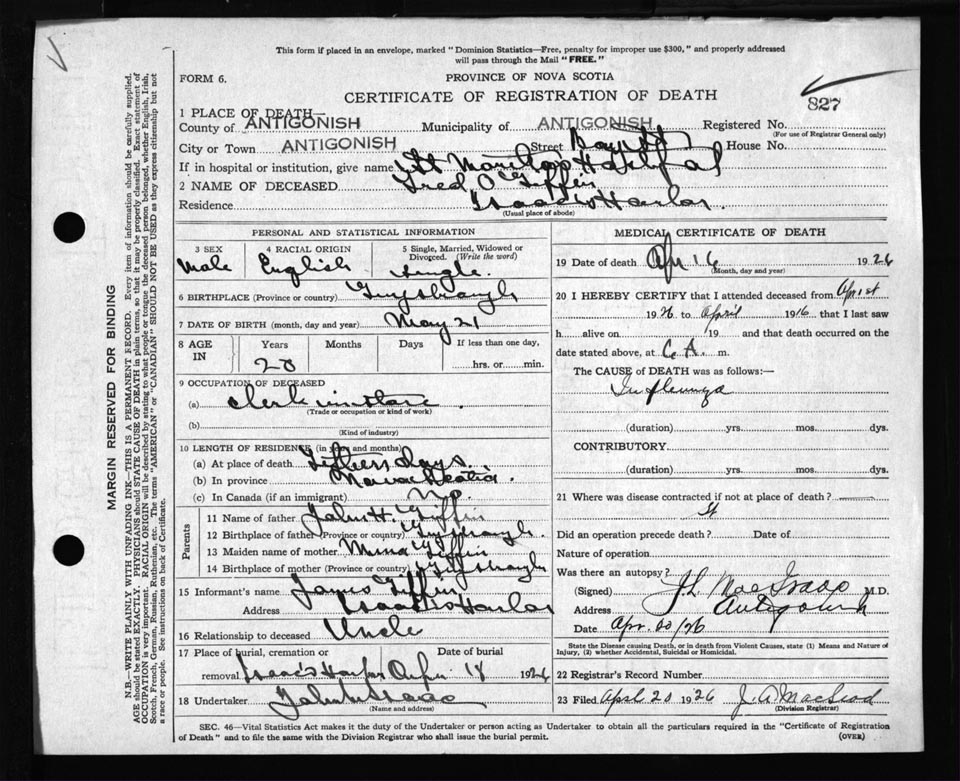 This form if placed in an envelope, marked "Dominion Statistics—Free, penalty for improper use $300," and properly addressed
will pass through the Mail "FREE."
FORM 6.
PROVINCE OF NOVA SCOTIA
CERTIFICATE OF REGISTRATION OF DEATH
827
1 PLACE OF DEATH—
County of ANTIGONISH Municipality of ANTIGONISH Registered No.
(For use of Registrar General only)
City or Town ANTIGONISH Street Bay St House No.
If in hospital or institution, give name St Marthas Hospital
2 NAME OF DECEASED Fred O Giffin
Residence Isaac's Harbor
(Usual place of abode)
PERSONAL AND STATISTICAL INFORMATION
3 SEX 4 RACIAL ORIGIN 5 Single, Married, Widowed or
Divorced. (Write the word)
Male English Single
6 BIRTHPLACE (Province or country) Guysborough
7 DATE OF BIRTH (month, day and year) May 21
8 AGE IN Years Months Days If less than one day,
28 hrs. or min.
9 OCCUPATION OF DECEASED
(a) Clerk in store
(Trade or occupation or kind of work)
(b)
(Kind of industry)
10 LENGTH OF RESIDENCE (in years and months)
(a) At place of death Fifteen days
(b) In province Nova Scotia
(c) In Canada (if an immigrant) No
Parents
11 Name of father John H. Giffin
12 Birthplace of father (Province or country) Guysborough
13 Maiden name of mother Giffin
14 Birthplace of mother (Province or country) Guysborough
15 Informant's name James Giffin
Address Isaac's Harbor
16 Relationship to deceased Uncle
17 Place of burial, cremation or Date of burial
removal Isaac's Harbor 18 1926
18 Undertaker
(Name and address)
MEDICAL CERTIFICATE OF DEATH
19 Date of death Apr 16 1926
(Month, day and year)
20 I HEREBY CERTIFY that I attended deceased from Apr 1st
1926 to April 1916 that I last saw
h alive on 19 and that death occurred on
date stated above, at 6 A. m.
The CAUSE of DEATH was as follows:—
Influenza
(duration) yrs. mos. dys.
CONTRIBUTORY
(duration) yrs. mos. dys.
21 Where was disease contracted if not at place of death?
Did an operation precede death? Date of
Nature of operation
Was there an autopsy?
(Signed) M.D.
Address Antigonish
Date Apr. 20/26
State the Disease causing Death, or in death from Violent Causes, state (1) Means and Nature of
Injury, (2) whether Accidental, Suicidal or Homicidal.
22 Registrar's Record Number
23 Filed April 20 1926 J. A. MacLeod
(Division Registrar)
SEC. 46—Vital Statistics Act makes it the duty of the Undertaker or person acting as Undertaker to obtain all the particulars required in the "Certificate of Registration
of Death" and to file the same with the Division Registrar who shall issue the burial permit. (OVER)
MARGIN RESERVED FOR BINDING
N.B.—WRITE PLAINLY WITH UNFADING INK—THIS IS A PERMANENT RECORD. Every item of information should be carefully supplied.
AGE should be stated EXACTLY. PHYSICIANS should STATE CAUSE OF DEATH in plain terms, so that it may be properly classified. Exact statement of
OCCUPATION is very important. RACIAL ORIGIN will be described by stating to what people or tongue the deceased person belonged, whether English, Irish,
Scotch, French, German, Russian, Ruthenian, etc. The terms "AMERICAN" or "CANADIAN" SHOULD NOT BE USED as they express citizenship but not
a race or people. See instructions on back of Certificate.